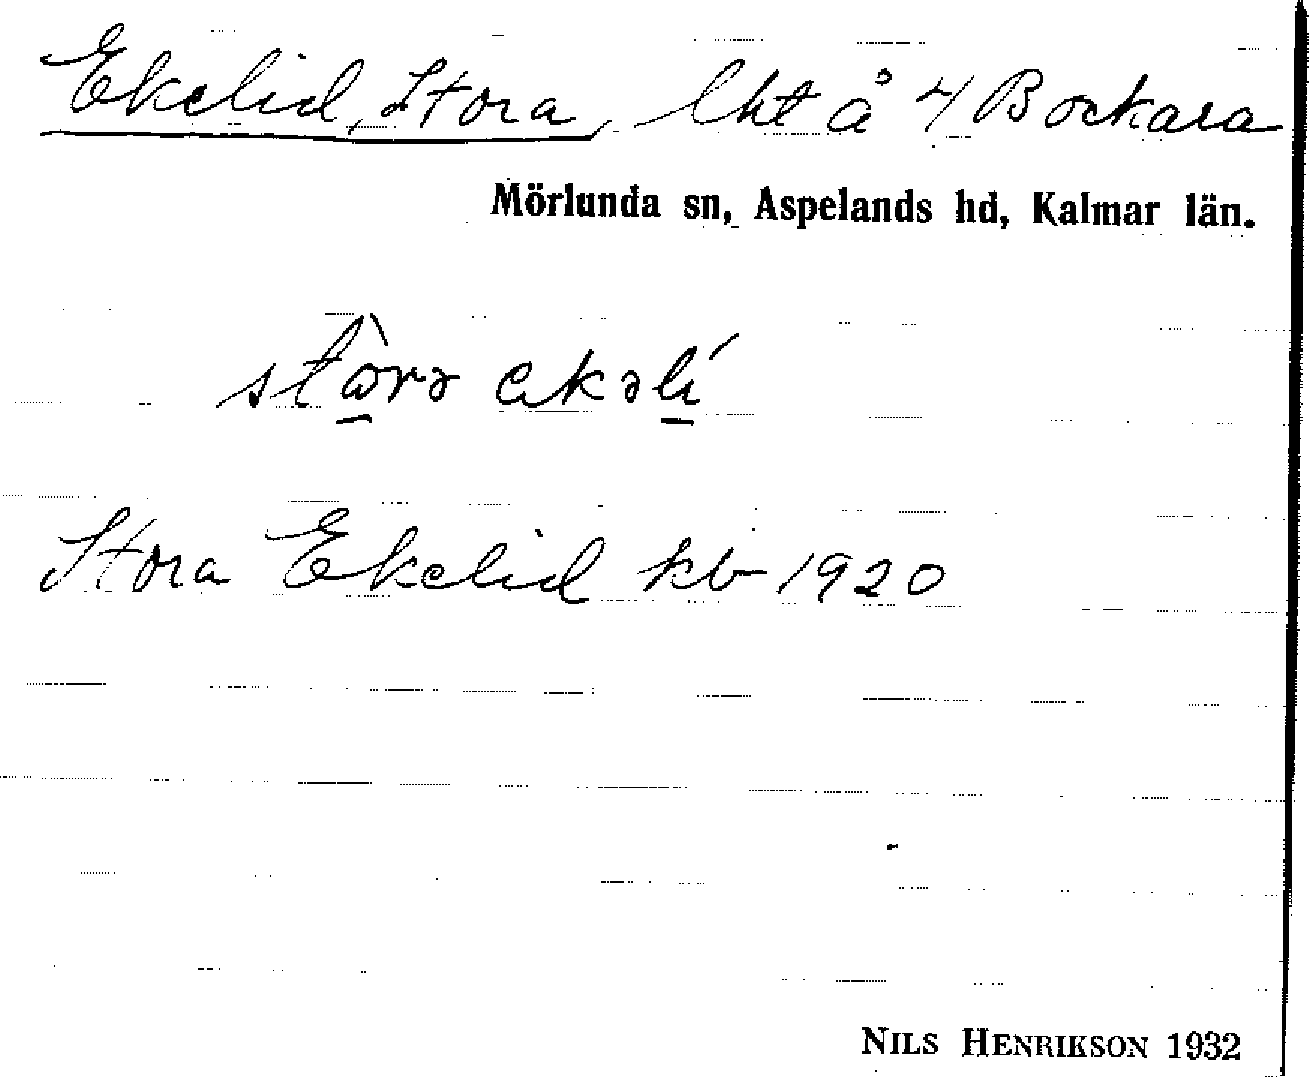 Ekelid, Stora, lht å 4 Bockara
Mörlunda sn, Aspelands hd, Kalmar län.
Stora Ekelid kb 1920
NILS HENRIKSON 1932